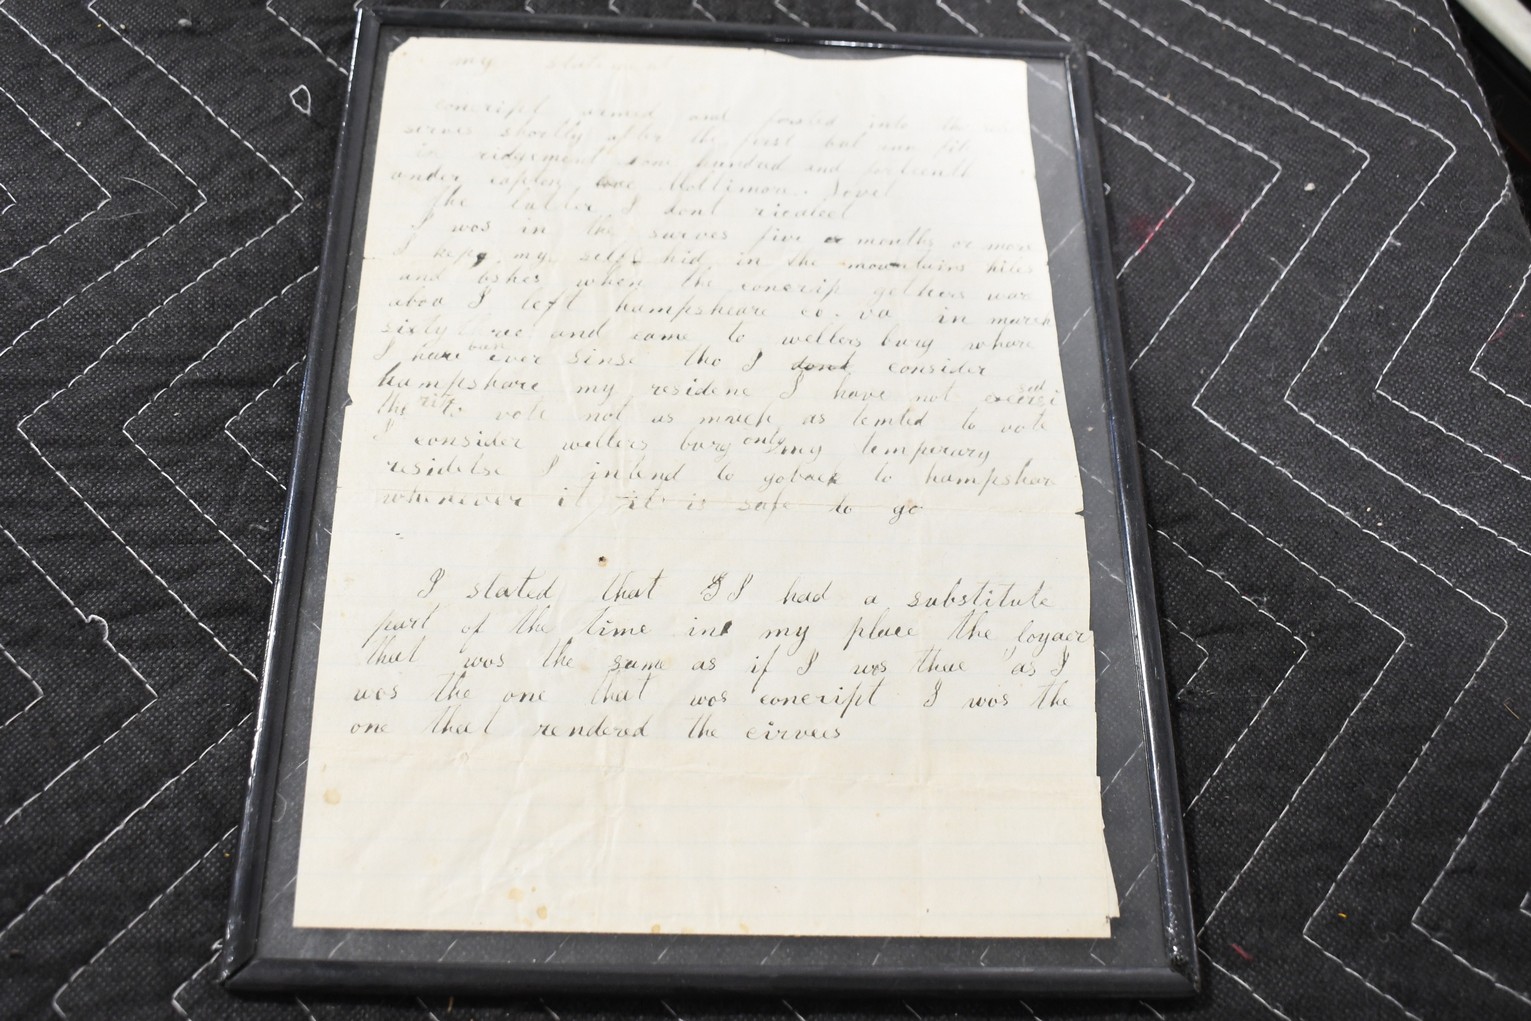 my statement
concript armed and forsted into the
serves shortly after the first bul run fit
in ridgement one hundred and forteenth
under capten Mottimore
the latter I dont ricolect
I was in the surves five or months or more
I kep my self hid in the mountains hiles
and bshes when the concrip gethers was
abou I left hampsheare co. va in march
sixty three and came to wellers burg whare
I have bun ever sinse tho I dont consider
hampshare my residene I have not exersi sed
the rit to vote not as much as temted to vote
I consider wellers burg only my temperary
residetse I intend to goback to hampshare
whenever it it is safe to go
I stated that I had a substitute
part of the time in my place the loyaer
that was the same as if I was thae as I
was the one that was concript I was the
one that rendered the cirvees